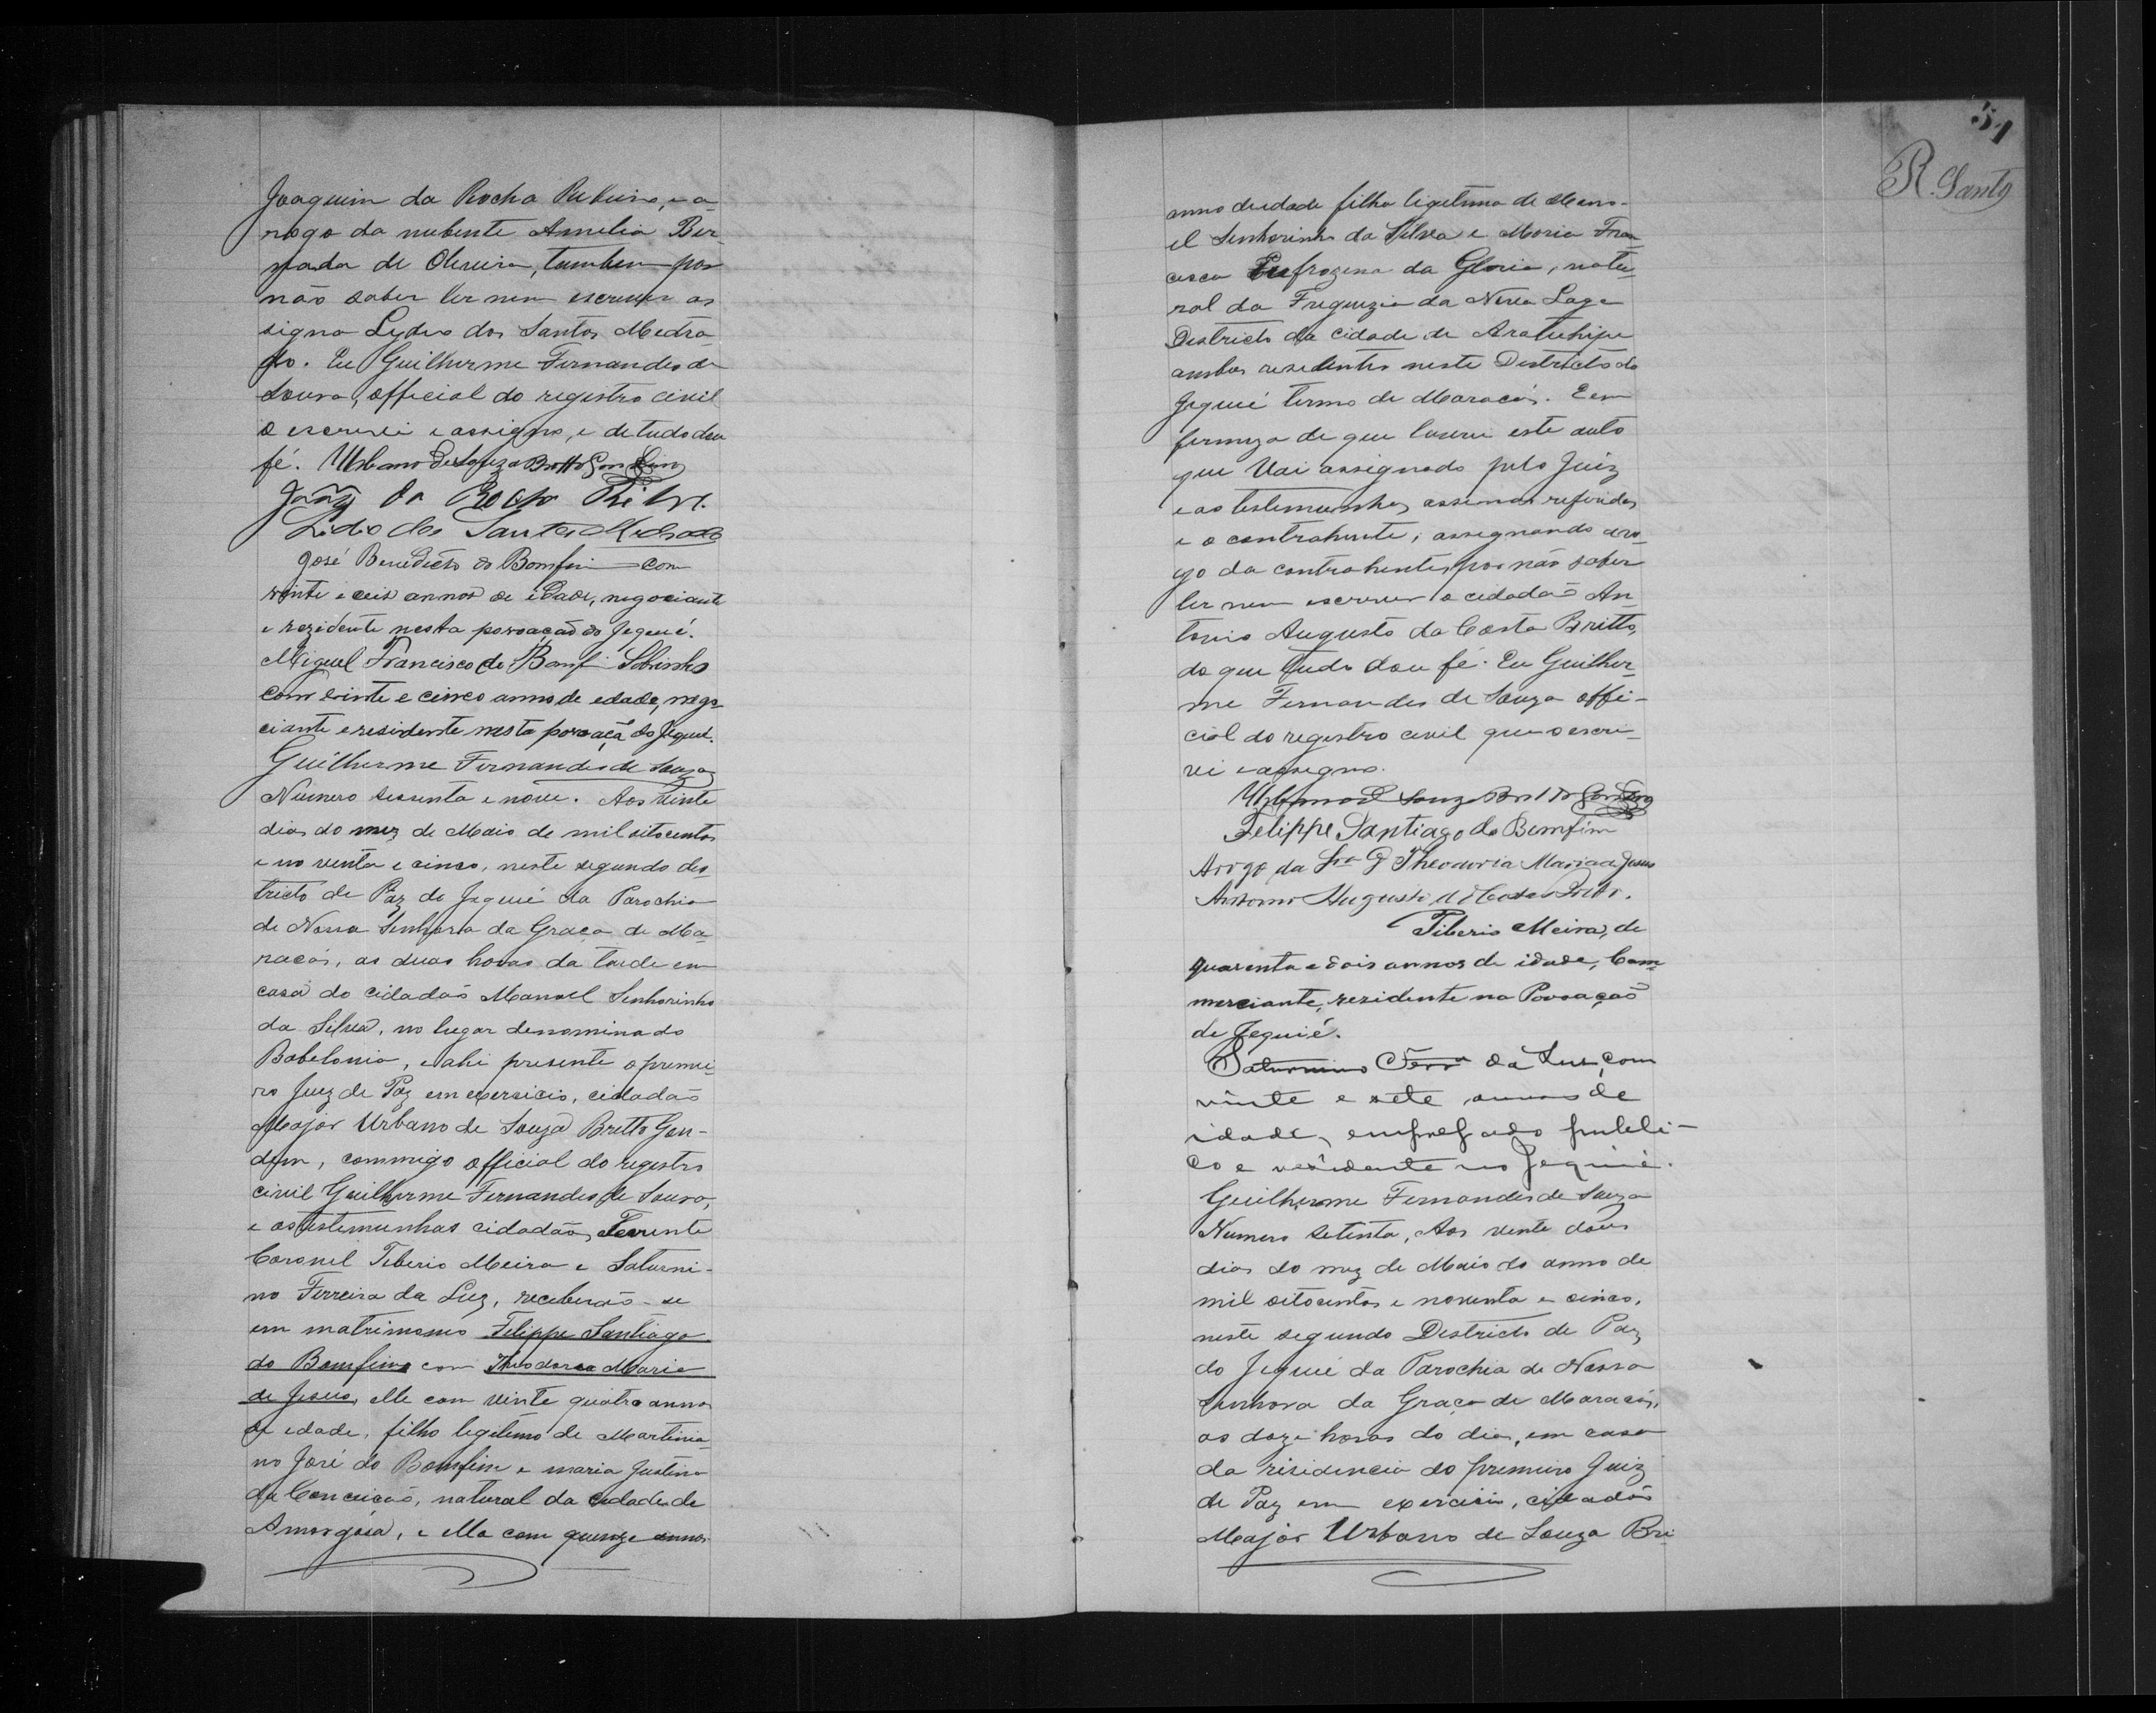 Joaquim da Rocha Ribeiro, e a
rogo da nubente Amelia Ber-
nada de Oliveira, tambem por
não saber ler nem escrever as
signa Lydio dos Santos Medra-
do. Eu Guilherme Fernandes de
Souza, official do registro civil
o escrevi e assigno, e de tudo dou
fé. Urbano de Souza Britto Gondim
da Rocha
Lidio dos Santos Medrado
José Benedicto do Bomfim com
vinte e seis annos de idade, negociante
e rezidente nesta povoação do Jequié.
Miguel Francisco do Bomfi Sobrinho
com vinte e cinco anno de edade, nego
ciante e residente nesta povoaçã do Jequié.
Guilherme Fernandes de Souza
Número sessenta e nóve. Aos vinte
dias do mez de Maio de mil oitocentos
e no venta e cinco, neste segundo des
tricto de Paz do Jequié da Parochia
de Nossa Senhora da Graça de Ma-
racás, as duas horas da tarde em
casa do cidadão Manoel Senhorinho
da Silva, no lugar denominado
Babelonia, e ahi presente o premei-
ro Juiz de Paz em exersicio, cidadão
Major Urbano de Souza Britto Gon-
dim, commigo official do registro
civil Guilherme Fernandes de Souza,
e as testemunhas cidadãos Tenente
Coronel Tiberio Meira e Saturni-
no Ferreira da Luz, receberão-se
em matrimonio Filippe Santiago
do Bomfim com Theodora Maria
de Jesus, elle com vinte quatro annos
de edade, filho legitimo de Martinia-
no José do Bomfim e maria Justina
da Conceição, natural da cidade de
Amargósa, e ella com quinze annos
51
R. Santos
anno de idade filha ligitima de Mano-
el Senhorinho da Silva e Maria Fran
cisca Eufrozina da Gloria, natu-
ral da Freguezia da Nova Lage
Destricto da cidade de Aratuhipe
ambos residentes neste Destricto do
Jequié termo de Maracás. E em
firmeza de que lavrei este auto
que vai assignado pelo Juiz
e as testemunhas assima referidas
e o contrahente, assignando aro-
go da contrahente por não saber
ler nem escrever o cidadão An-
tonio Augusto da Costa Britto,
do que tudo dou fé. Eu Guilher-
me Fernandes de Souza offi-
cial do registro civil que o escri-
vi e assigno.
Urbano de Souza Britto Gondim
Felippe Santiago do Bomfim
Arogo da Sra D Theodoria Maria de Jesus
Antonio Augusto da Costa Britto.
Tiberio Meira, de
quarenta e dois annos de idade, Com-
merciante, rezidente na Povoação
de Jequié.
Saturnino Ferra da Luz, com
vinte e sete annos de
idade, empregado publi-
co e residente no Jequié.
Guilherme Fernandes de Souza
Numero setenta, Aos vente dous
dias do mez de Maio do anno de
mil oitocentos e noventa e cinco,
neste segundo Destricto de Paz
do Jequié da Parochia de Nossa
Senhora da Graça de Maracás,
as doze horas do dia, em casa
da risidencia do premeiro Juiz
de Paz em exercicio, cidadão
Major Urbano de Souza Bri-